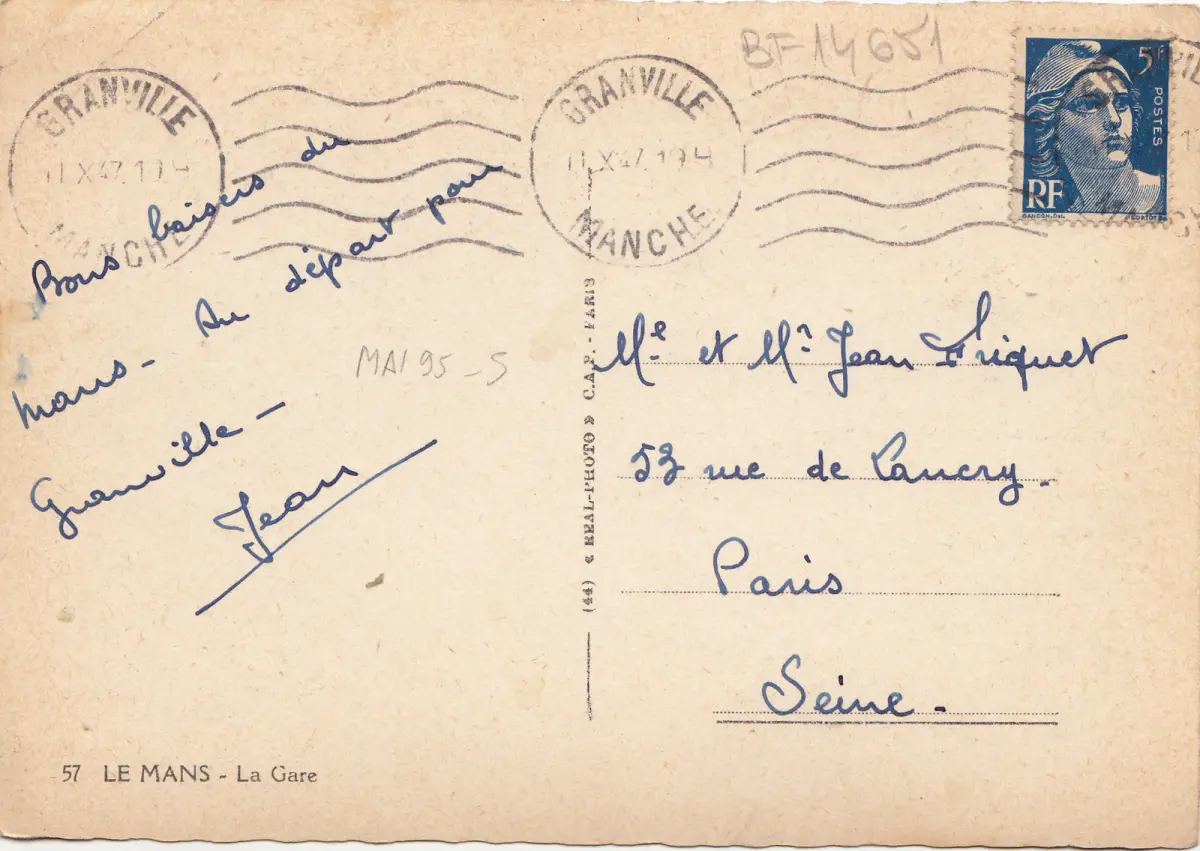 BF 14651
GRANVILLE
MANCHE
GRANVILLE
MANCHE
5F
POSTES
RF
GANDON, Del.
Bons baisers du
Mans - Au départ pour
Granville -
Jean
MAI 95 - S
(44) « REAL-PHOTO » C.A.P. - PARIS
Mˡᵉ et Mʳ Jean Friquet
53 rue de Lancry.
Paris
Seine.-
57 LE MANS - La Gare